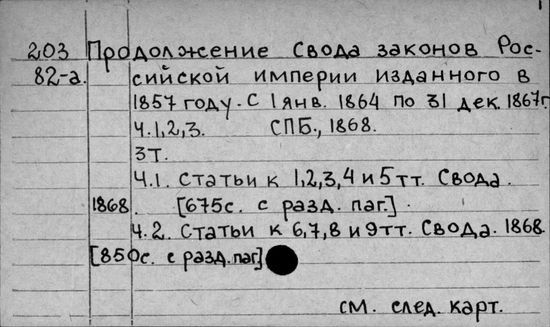 203 Продолжение Свода законов Рос-
82-а. сийской империи изданного в
1857 году. С 1 янв. 1864 по 31 дек. 1867г.
Ч.1,2,3. СПБ., 1868.
3т.
Ч.1. Статьи к 1,2,3,4 и 5 тт. Свода.
1868. [675с. с разд. паг.]
Ч.2. Статьи к 6,7,8 и 9 тт. Свода. 1868.
[850с. с разд. паг.]
см. след. карт.